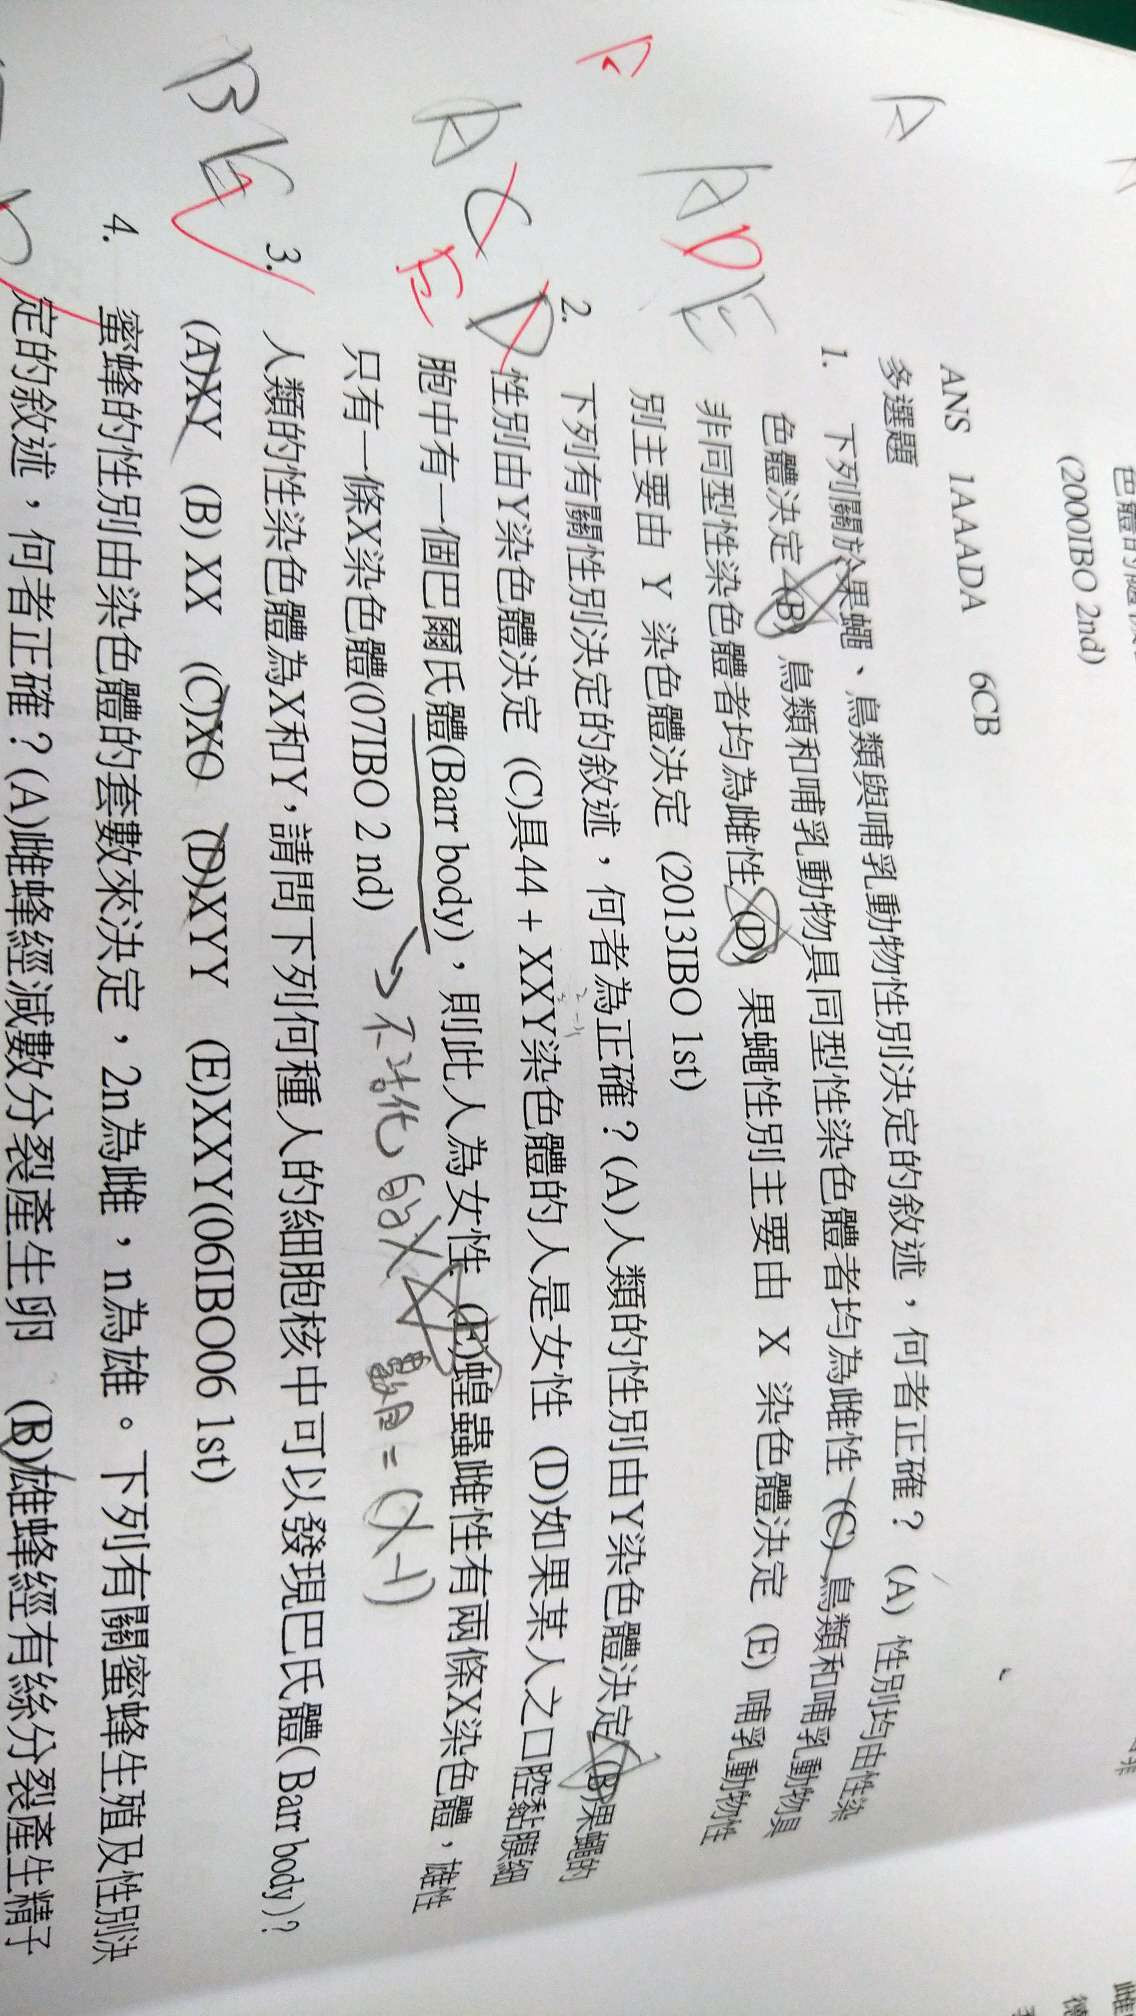 (2000IBO 2nd)
ANS 1AAADA 6CB
多選題
1. 下列關於果蠅、鳥類與哺乳動物性別決定的敘述，何者正確？(A) 性別均由性染
色體決定 (B) 鳥類和哺乳動物具同型性染色體者均為雌性 (C) 鳥類和哺乳動物具
非同型性染色體者均為雌性 (D) 果蠅性別主要由 X 染色體決定 (E) 哺乳動物性
別主要由 Y 染色體決定 (2013IBO 1st)
A D E
2. 下列有關性別決定的敘述，何者為正確？(A)人類的性別由Y染色體決定 (B)果蠅的
性別由Y染色體決定 (C)具44 + XXY染色體的人是女性 (D)如果某人之口腔黏膜細
胞中有一個巴爾氏體(Barr body)，則此人為女性 (E)蝗蟲雌性有兩條X染色體，雄性
只有一條X染色體(07IBO 2 nd)
A C D
E
不活化的X
數目= (X-1)
3. 人類的性染色體為X和Y，請問下列何種人的細胞核中可以發現巴氏體( Barr body)？
(A)XY (B) XX (C)XO (D)XYY (E)XXY(06IBO06 1st)
B E
4. 蜜蜂的性別由染色體的套數來決定，2n為雌，n為雄。下列有關蜜蜂生殖及性別決
定的敘述，何者正確？(A)雌蜂經減數分裂產生卵 (B)雄蜂經有絲分裂產生精子